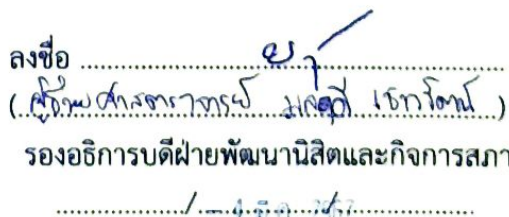 ลงชื่อ
(ผู้ช่วยศาสตราจารย์)
รองอธิการบดีฝ่ายพัฒนานิสิตและกิจการสภา
- 4 มี.ค. 2567